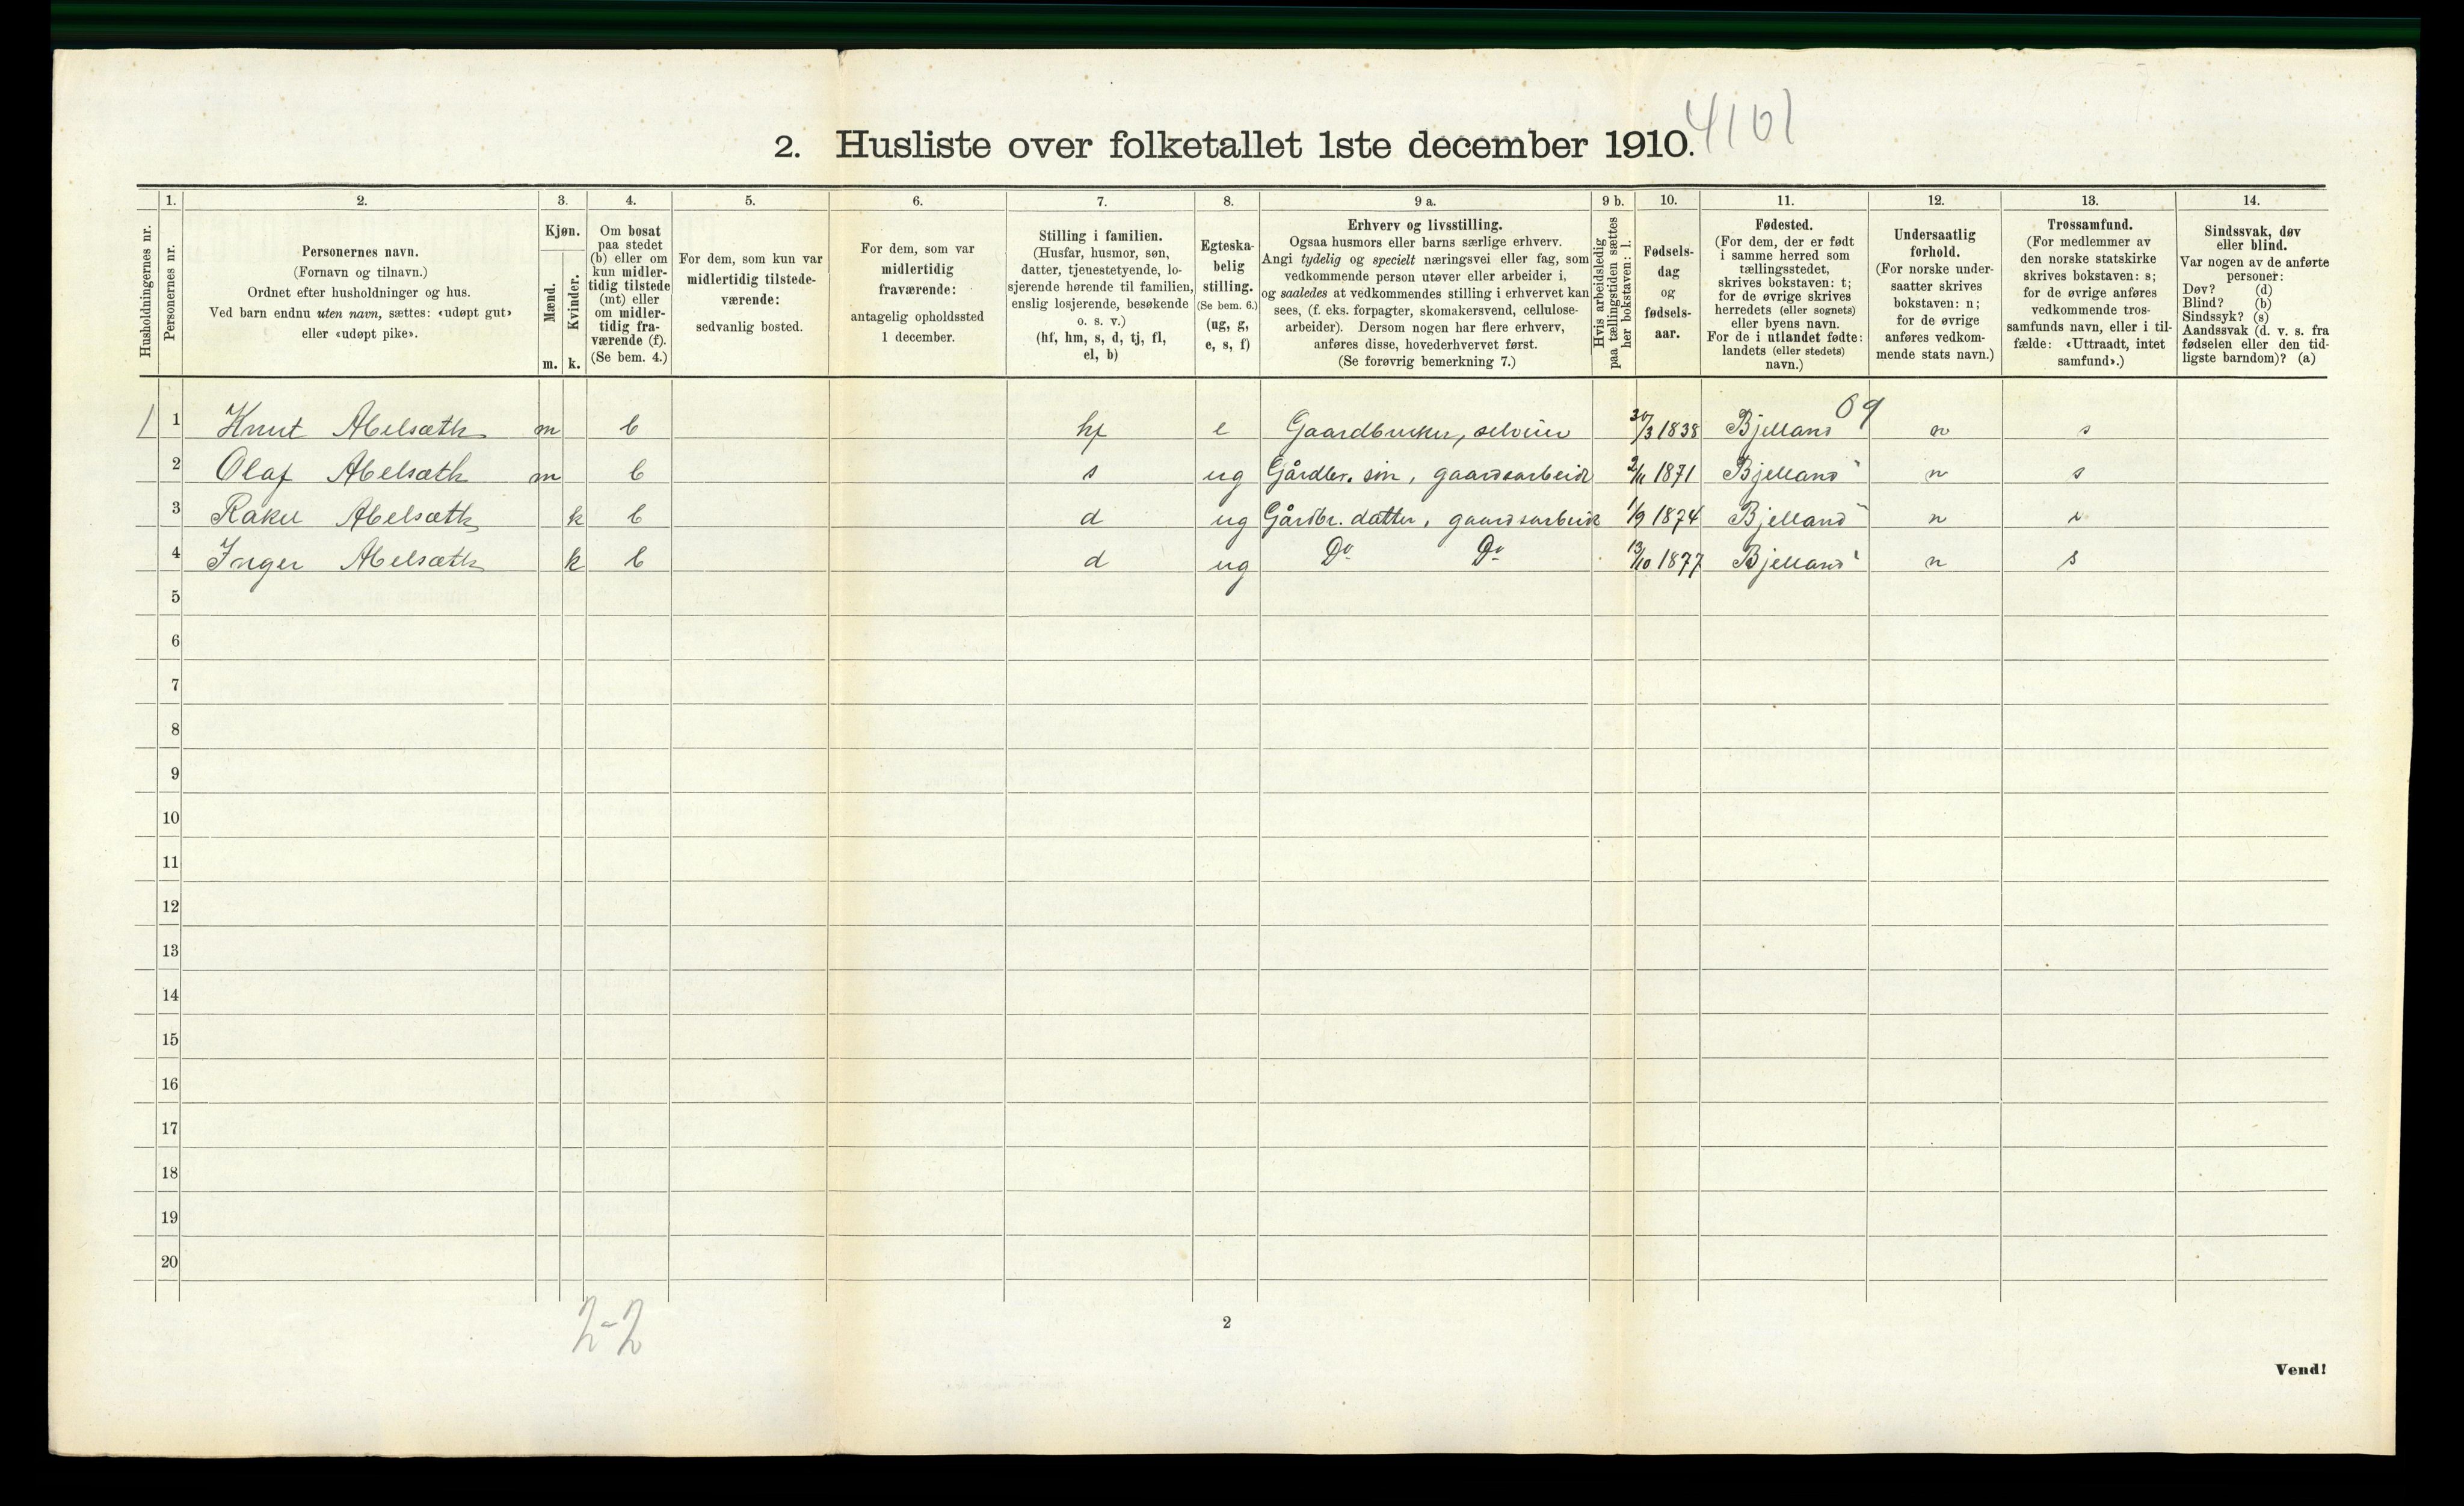 4101
2. Husliste over folketallet 1ste december 1910.
Husholdningernes nr.
1.
Personernes nr.
2.
Personernes navn.
(Fornavn og tilnavn.)
Ordnet efter husholdninger og hus.
Ved barn endnu uten navn, sættes: «udøpt gut»
eller «udøpt pike».
3.
Kjøn.
Mænd.
m.
Kvinder.
k.
4.
Om bosat
paa stedet
(b) eller om
kun midler-
tidig tilstede
(mt) eller
om midler-
tidig fra-
værende (f).
(Se bem. 4.)
5.
For dem, som kun var
midlertidig tilstede-
værende:
sedvanlig bosted.
6.
For dem, som var
midlertidig
fraværende:
antagelig opholdssted
1 december.
7.
Stilling i familien.
(Husfar, husmor, søn,
datter, tjenestetyende, lo-
sjerende hørende til familien,
enslig losjerende, besøkende
o. s. v.)
(hf, hm, s, d, tj, fl,
el, b)
8.
Egteska-
belig
stilling.
(Se bem. 6.)
(ug, g,
e, s, f)
9 a.
Erhverv og livsstilling.
Ogsaa husmors eller barns særlige erhverv.
Angi tydelig og specielt næringsvei eller fag, som
vedkommende person utøver eller arbeider i,
og saaledes at vedkommendes stilling i erhvervet kan
sees, (f. eks. forpagter, skomakersvend, cellulose-
arbeider). Dersom nogen har flere erhverv,
anføres disse, hovederhvervet først.
(Se forøvrig bemerkning 7.)
9 b.
Hvis arbeidsledig
paa tællingstiden sættes
her bokstaven: l.
10.
Fødsels-
dag
og
fødsels-
aar.
11.
Fødested.
(For dem, der er født
i samme herred som
tællingsstedet,
skrives bokstaven: t;
for de øvrige skrives
herredets (eller sognets)
eller byens navn.
For de i utlandet fødte:
landets (eller stedets)
navn.)
12.
Undersaatlig
forhold.
(For norske under-
saatter skrives
bokstaven: n;
for de øvrige
anføres vedkom-
mende stats navn.)
13.
Trossamfund.
(For medlemmer av
den norske statskirke
skrives bokstaven: s;
for de øvrige anføres
vedkommende tros-
samfunds navn, eller i til-
fælde: «Uttraadt, intet
samfund».)
14.
Sindssvak, døv
eller blind.
Var nogen av de anførte
personer:
Døv? (d)
Blind? (b)
Sindssyk? (s)
Aandssvak (d. v. s. fra
fødselen eller den tid-
ligste barndom)? (a)
1 1 Knut Abelsæth m b hf e Gaardbruker, selveier 30/3 1838 Bjelland 09 n s
2 Olaf Abelsæth m b s ug Gårdbr. søn, gaardsarbeide 2/11 1871 Bjelland n s
3 Rakel Abelsæth k b d ug Gårdbr. datter, gaardsarbeide 1/9 1874 Bjelland n s
4 Inger Abelsæth k b d ug Do Do 13/10 1877 Bjelland n s
5
6
7
8
9
10
11
12
13
14
15
16
17
18
19
20
2-2
2
Vend!